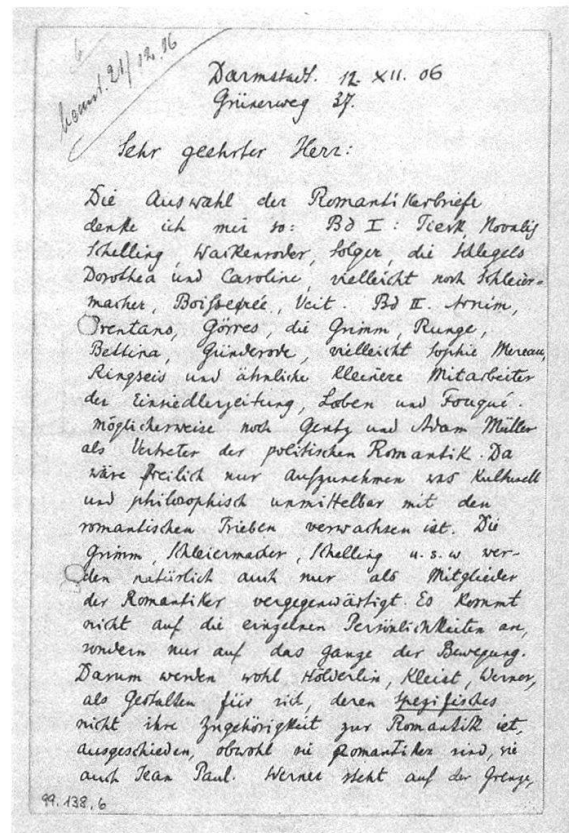 beant. 21/12.06
Darmstadt. 12. XII. 06
Grünerweg 37.
Sehr geehrter Herr:
Die Auswahl der Romantikerbriefe
denke ich mir so: Bd I: Tieck, Novalis
Schelling, Wackenroder, Solger, die Schlegels
Dorothea und Caroline, vielleicht noch Schleier-
macher, Boisserée, Veit. Bd II. Arnim,
Brentano, Görres, die Grimm, Runge,
Bettina, Günderode, vielleicht Sophie Mereau,
Ringseis und ähnliche kleinere Mitarbeiter
der Einsiedlerzeitung, Loben und Fouqué.
möglicherweise noch Gentz und Adam Müller
als Vertreter der politischen Romantik. Da
wäre freilich nur aufzunehmen was kulturell
und philosophisch unmittelbar mit den
romantischen Trieben verwachsen ist. Die
Grimm, Schleiermacher, Schelling u.s.w wer-
den natürlich auch nur als Mitglieder
der Romantiker vergegenwärtigt. Es kommt
nicht auf die einzelnen Persönlichkeiten an,
sondern nur auf das ganze der Bewegung.
Darum werden wohl Hölderlin, Kleist, Werner,
als Gestalten für sich, deren spezifisches
nicht ihre Zugehörigkeit zur Romantik ist,
ausgeschieden, obwohl sie Romantiker sind, wie
auch Jean Paul. Werner steht auf der Grenze,
99.138.6